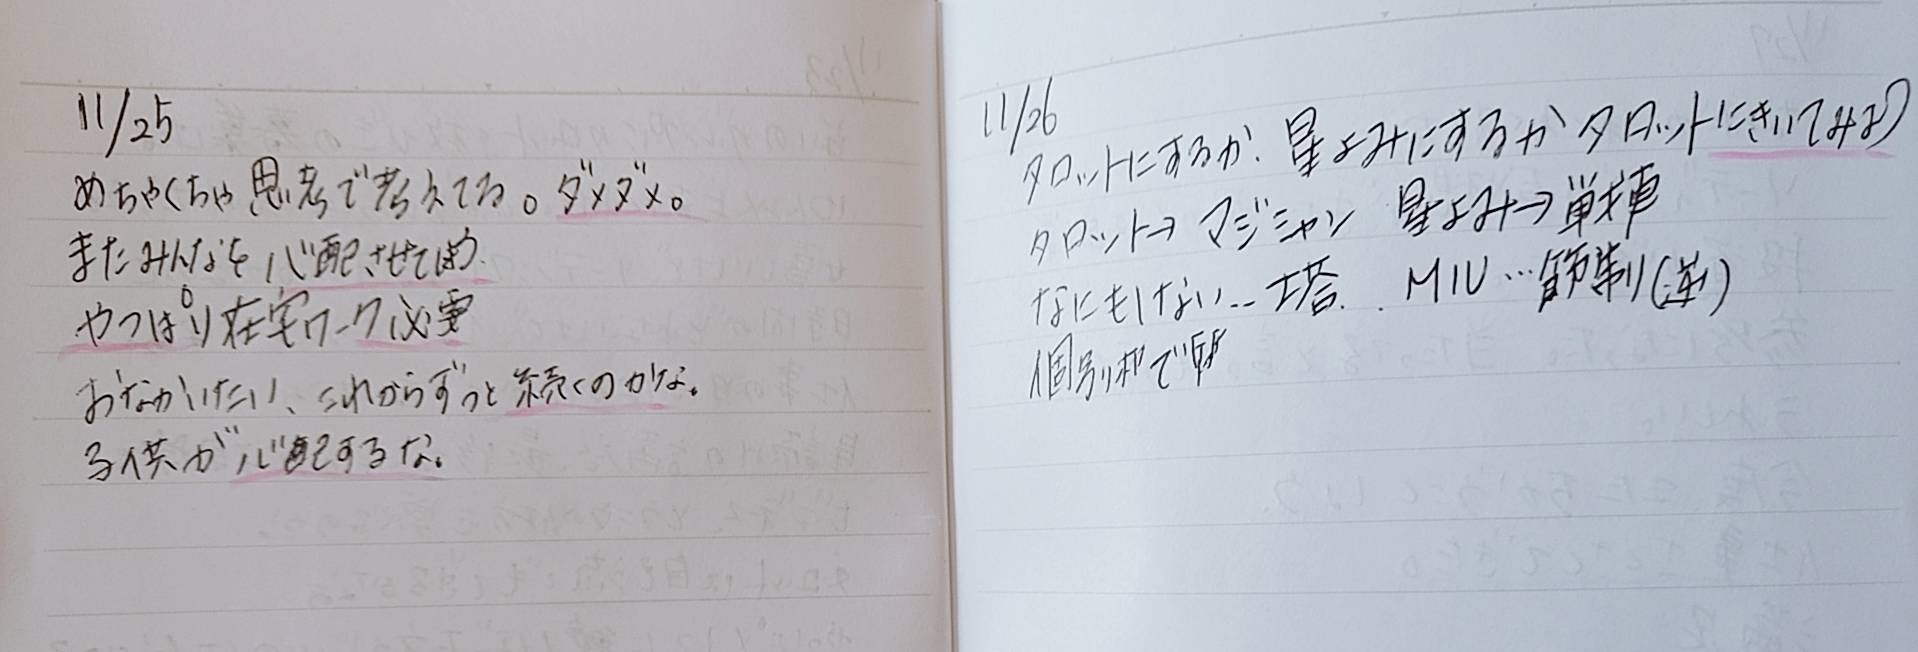 11/25
めちゃくちゃ思考で考えてる。ダメダメ。
またみんなを心配させてしまう
やっぱり在宅ワーク必要
おなかいたい、これからずっと続くのかな。
子供が心配するな。
11/26
タロットにするか、星よみにするかタロットにきいてみよう
タロット→マジシャン 星よみ→戦車
なにもしない…塔.. MIU…節制(逆)
個別で